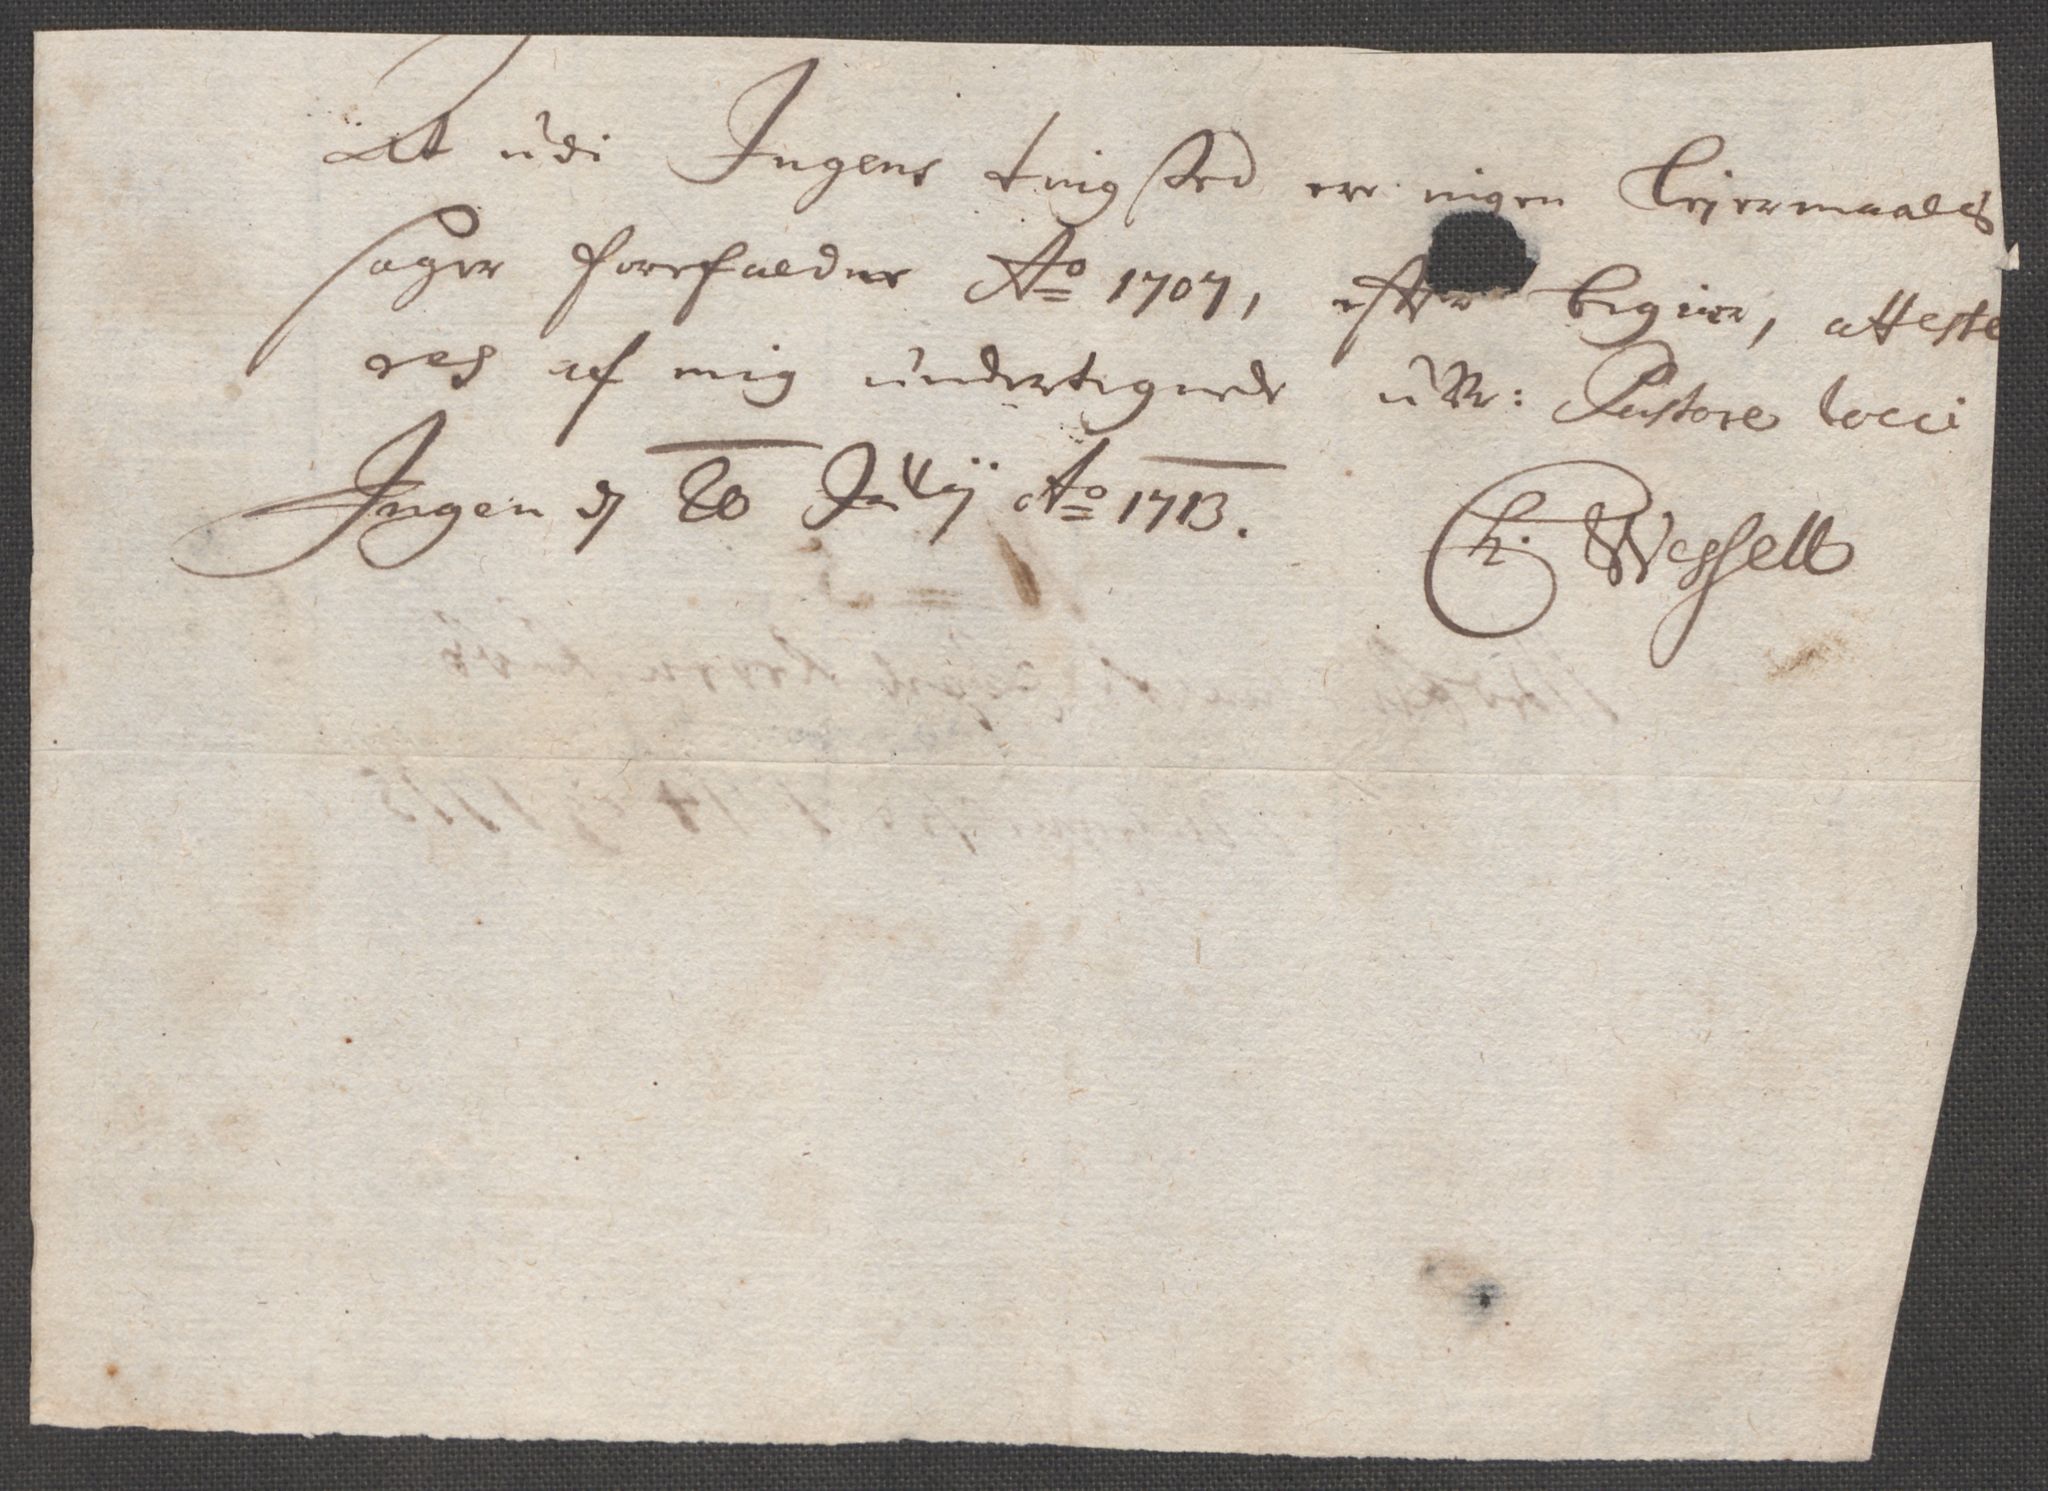 At udi Ingens tingsted ere ingen Leiermaals
sager forefaldne Ao 1707, efter begier, atteste
res af mig undertegnede Pastore locci
Ingen d 20 Ao 1713.
Ch. Wessell